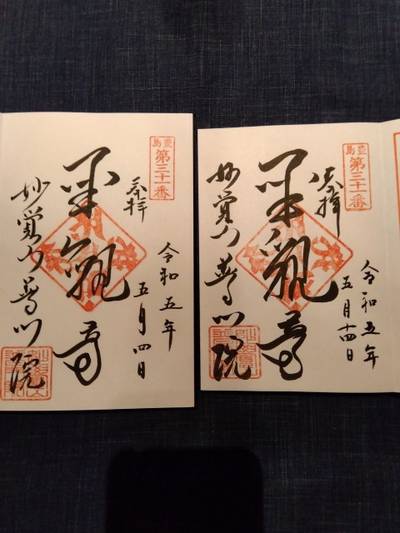 豊島
第三十一番
奉拝
令和五年
五月四日
観音
妙覚山
院
豊島
第三十一番
奉拝
令和五年
五月十四日
観音
妙覚山
院